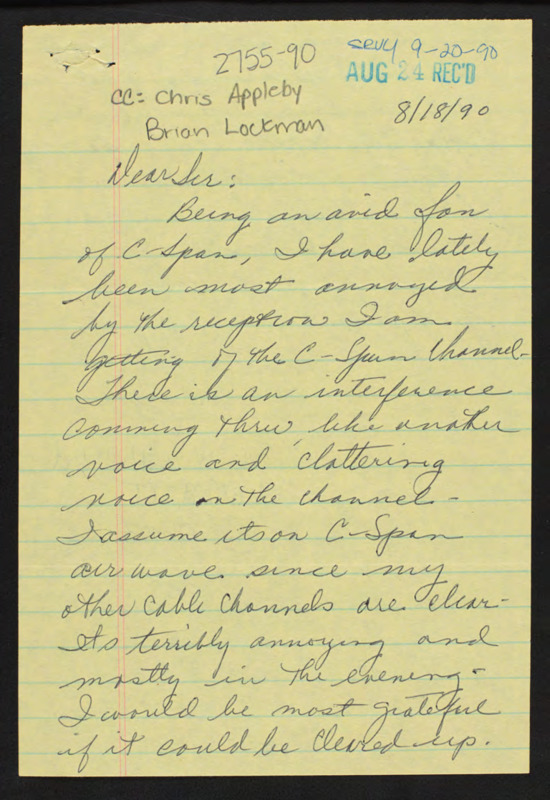 2755-90
SRVY 9-20-90
AUG 24 REC'D
CC: Chris Appleby
Brian Lockman
8/18/90
Dear Sir:
Being an avid fan
of C-Span, I have lately
been most annoyed
by the reception I am
getting of the C-Span Channel-
There is an interference
comming thru, like another
voice and clattering
noice on the channel-
I assume its on C-Span
air wave since my
other Cable Channels are clear-
Its terribly annoying and
mostly in the evening-
I would be most grateful
if it could be cleared up.